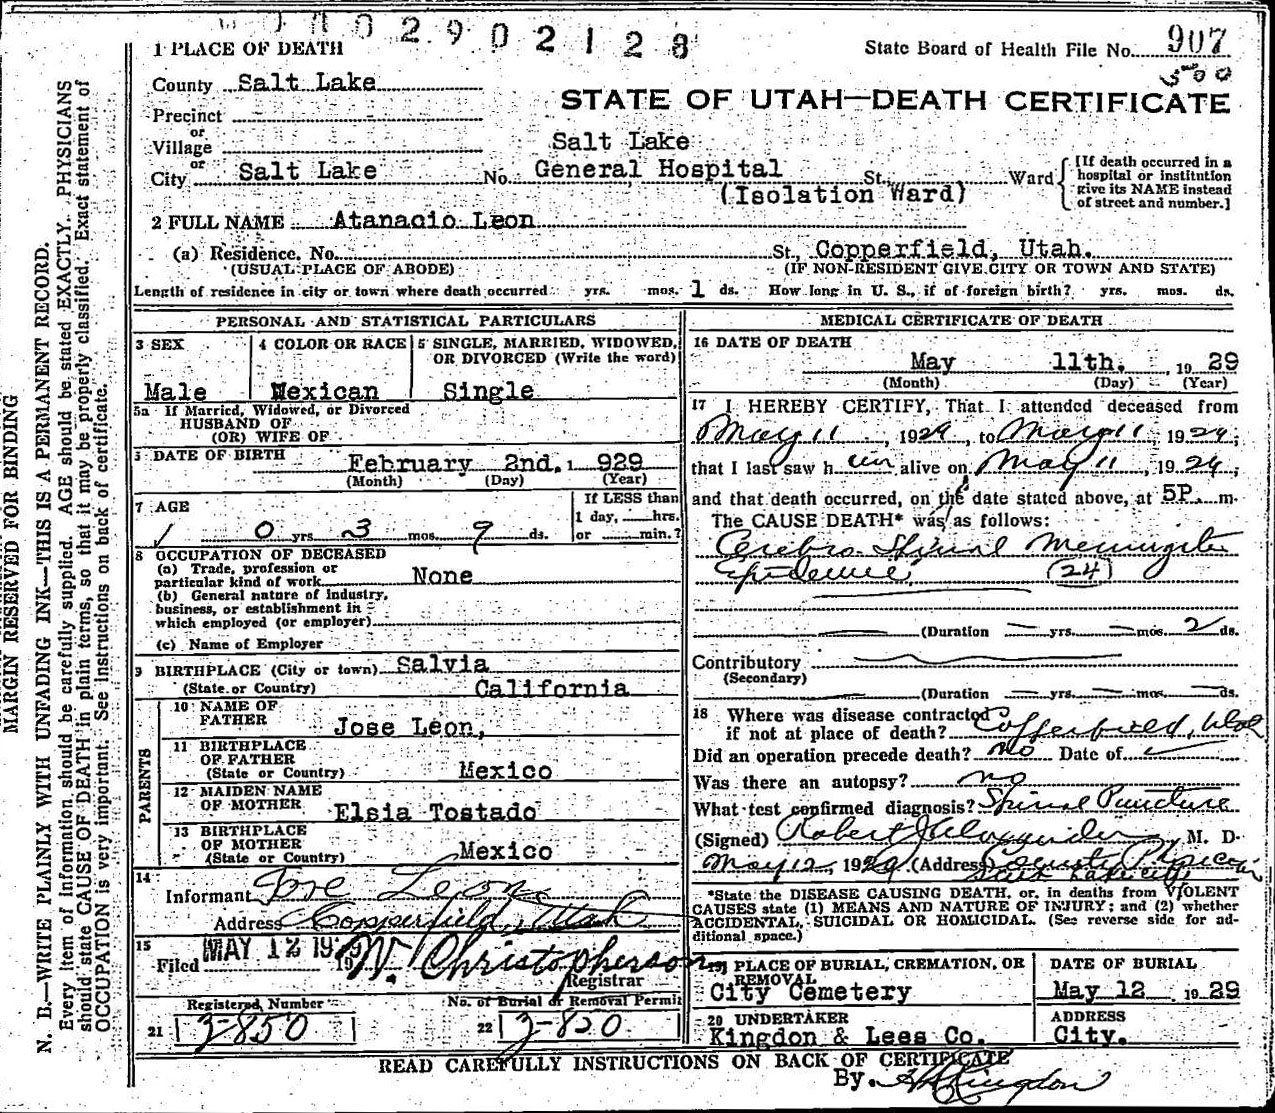 02902128
1 PLACE OF DEATH
State Board of Health File No. 907
300
County Salt Lake
STATE OF UTAH—DEATH CERTIFICATE
Precinct
or
Village
or
City Salt Lake No. Salt Lake General Hospital St., Ward
(Isolation Ward)
[If death occurred in a hospital or institution give its NAME instead of street and number.]
2 FULL NAME Atanacio Leon
(a) Residence. No. St., Copperfield, Utah.
(USUAL PLACE OF ABODE) (IF NON-RESIDENT GIVE CITY OR TOWN AND STATE)
Length of residence in city or town where death occurred yrs. mos. 1 ds. How long in U. S., if of foreign birth? yrs. mos. ds.
PERSONAL AND STATISTICAL PARTICULARS
3 SEX
Male
4 COLOR OR RACE
Mexican
5 SINGLE, MARRIED, WIDOWED, OR DIVORCED (Write the word)
Single
5a If Married, Widowed, or Divorced
HUSBAND OF
(OR) WIFE OF
DATE OF BIRTH February 2nd, 1 929
(Month) (Day) (Year)
7 AGE
0 yrs 3 mos. 9 ds.
If LESS than
1 day, hrs.
or min.?
8 OCCUPATION OF DECEASED
(a) Trade, profession or
particular kind of work None
(b) General nature of industry,
business, or establishment in
which employed (or employer)
(c) Name of Employer
9 BIRTHPLACE (City or town) Salvia
(State or Country) California
PARENTS
10 NAME OF
FATHER Jose Leon,
11 BIRTHPLACE
OF FATHER
(State or Country) Mexico
12 MAIDEN NAME
OF MOTHER Elsia Tostado
13 BIRTHPLACE
OF MOTHER
(State or Country) Mexico
14
Informant Jose Leon
Address Copperfield, Utah
15
Filed MAY 12 1929 19 W. Christopherson
Registrar
Registered Number No. of Burial or Removal Permit
21 3-850 22 3-820
MEDICAL CERTIFICATE OF DEATH
16 DATE OF DEATH
May 11th. , 19 29
(Month) (Day) (Year)
17 I HEREBY CERTIFY, That I attended deceased from
May 11, 1929, to May 11, 1929;
that I last saw him alive on May 11, 1929;
and that death occurred, on the date stated above, at 5P. m.
The CAUSE DEATH* was as follows:
Cerebro Spinal Meningitis
Epidemic (24)
(Duration — yrs. — mos. 2 ds.
Contributory
(Secondary)
(Duration — yrs. — mos. — ds.
18 Where was disease contracted
if not at place of death? Copperfield, Utah
Did an operation precede death? No Date of
Was there an autopsy? no
What test confirmed diagnosis? Spinal Puncture
(Signed) Robert J Alexander, M. D.
May 12, 1929 (Address) County Physician
Salt Lake City
*State the DISEASE CAUSING DEATH, or, in deaths from VIOLENT
CAUSES state (1) MEANS AND NATURE OF INJURY; and (2) whether
ACCIDENTAL, SUICIDAL OR HOMICIDAL. (See reverse side for ad-
ditional space.)
19 PLACE OF BURIAL, CREMATION, OR
REMOVAL
City Cemetery
DATE OF BURIAL
May 12 19 29
20 UNDERTAKER
Kingdon & Lees Co.
ADDRESS
City.
READ CAREFULLY INSTRUCTIONS ON BACK OF CERTIFICATE
By. Kingdon
MARGIN RESERVED FOR BINDING
N. B.—WRITE PLAINLY WITH UNFADING INK—THIS IS A PERMANENT RECORD.
Every item of information should be carefully supplied. AGE should be stated EXACTLY. PHYSICIANS
should state CAUSE OF DEATH in plain terms, so that it may be properly classified. Exact statement of
OCCUPATION is very important. See instructions on back of certificate.